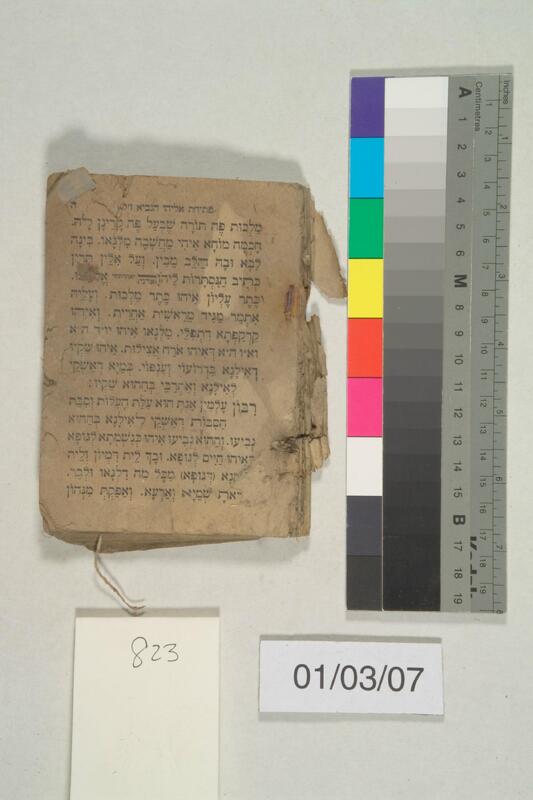 פתיחת אליהו הנביא זיל
מַלְכוּת פֶּה תּוֹרָה שֶׁבְּעַל פֶּה קָרֵינָן לָהּ.
חָכְמָה מוֹחָא אִיהִי מַחֲשָׁבָה מִלְּגָאו. בִּינָה
לִבָּא וּבָהּ הַלֵּב מֵבִין. וְעַל אִלֵּין תְּרֵין
כְּתִיב הַנִּסְתָּרוֹת לַיהֹוָה
וְכֶתֶר עֶלְיוֹן אִיהוּ כֶּתֶר מַלְכוּת. וְעָלֵיהּ
אִתְּמַר מַגִּיד מֵרֵאשִׁית אַחֲרִית. וְאִיהוּ
קַרְקַפְתָּא דִתְפִלֵּי. מִלְּגָאו אִיהוּ יו״ד ה״א
וא״ו ה״א דְּאִיהוּ אֹרַח אֲצִילוּת. אִיהוּ שַׁקְיוּ
דְּאִילָנָא בִּדְרוֹעוֹי וְעַנְפּוֹי. כְּמַיָּא דְּאַשְׁקֵי
לְאִילָנָא וְאִתְרַבֵּי בְּהַהוּא שַׁקְיוּ:
רִבּוֹן עָלְמִין אַנְתְּ הוּא עִלַּת הָעִלּוֹת וְסִבַּת
הַסִּבּוֹת דְּאַשְׁקֵי לְאִילָנָא בְּהַהוּא
נְבִיעוּ. וְהַהוּא נְבִיעוּ אִיהוּ כְּנִשְׁמָתָא לְגוּפָא
דְּאִיהוּ חַיִּים לְגוּפָא. וּבָךְ לֵית דִּמְיוֹן וְלֵית
(דְּגוּפָא) מִכָּל מַה דִּלְגָאו וּלְבַר.
שְׁמַיָּא וְאַרְעָא. וְאַפֵּקְתְּ מִנְּהוֹן
823
01/03/07
inches
Centimetres
A 1 2 3 4 5 6 M 8 9 10 11 12 13 14 15 B 17 18 19